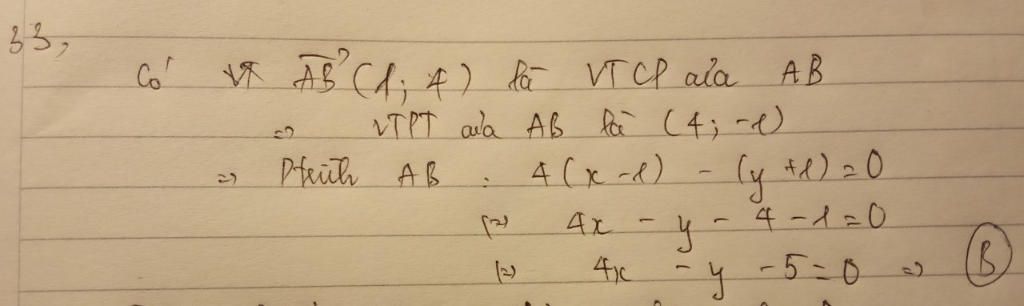 33,
Có VT AB→ (1; 4) là VTCP của AB
=> VTPT của AB là (4; -1)
=> Ptrình AB : 4(x-1) - (y+1) = 0
(=) 4x - y - 4 - 1 = 0
(=) 4x - y - 5 = 0 => B